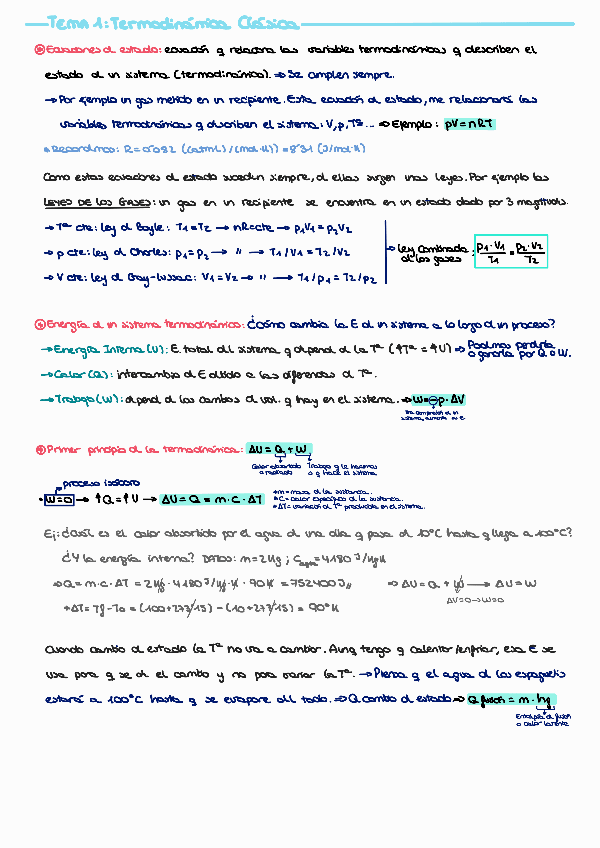 Tema 1: Termodinámica Clásica
Ecuaciones d estado: ecuación q relaciona las variables termodinámicas q describen el
estado d un sistema (termodinámico). ⇒ Se cumplen siempre.
→ Por ejemplo un gas metido en un recipiente. Esta ecuación d estado, me relacionará las
variables termodinámicas q describen el sistema: V, p, Tª... ⇒ Ejemplo: pV = nRT
* Recordemos: R = 0'082 ((atm·l)/(mol·K)) = 8'31 (J/mol·K)
Como estas ecuaciones d estado suceden siempre, d ellas surgen unas leyes. Por ejemplo las
LEYES DE LOS GASES: un gas en un recipiente se encuentra en un estado dado por 3 magnitudes.
→ Tª cte: ley d Boyle: T1 = T2 → nR = cte → p1V1 = p2V2
→ p cte: ley d Charles: p1 = p2 → " → T1/V1 = T2/V2
→ V cte: ley d Gay-Lussac: V1 = V2 → " → T1/p1 = T2/p2
→ Ley Combinada d los gases: p1·V1/T1 = p2·V2/T2
Energía d un sistema termodinámico: ¿Cómo cambia la E d un sistema a lo largo d un proceso?
→ Energía Interna (U): E. total dl sistema q depend d la Tª (↑Tª = ↑U) ⇒ Podemos perderla
o ganarla por Q o W.
→ Calor (Q): intercambio d E debido a las diferencias d Tª.
→ Trabajo (W): depend d los cambios d vol. q hay en el sistema. ⇒ W = ⊖p·ΔV
Primer principio d la termodinámica: ΔU = Q + W
Calor absorbido Trabajo q le hacemos
o realizado o q hace el sistema
proceso isócoro
• W = 0 → ↑Q = ↑U → ΔU = Q = m·C·ΔT
* m = masa d la sustancia.
* C = calor específico d la sustancia.
* ΔT = variación d Tª producida en el sistema.
Ej: ¿Cuál es el calor absorbido por el agua d una olla q pasa d 10ºC hasta q llega a 100ºC?
¿Y la energía interna? DATOS: m = 2Kg; Cagua = 4180 J/KgK
⇒ Q = m·c·ΔT = 2Kg · 4180 J/Kg·K · 90K = 752400 J ⇒ ΔU = Q + W → ΔU = W
ΔV = 0 → W = 0
* ΔT = Tf - To = (100 + 273'15) - (10 + 273'15) = 90ºK
Cuando cambio d estado la Tª no va a cambiar. Aunq tengo q calentar/enfriar, esa E se
usa para q se dé el cambio y no para variar la Tª. → Piensa q el agua d los espaguetis
estará a 100ºC hasta q se evapore dll todo. ⇒ Q cambio d estado ⇒ Q fusión = m·hf
Entalpía d fusión
o calor latente